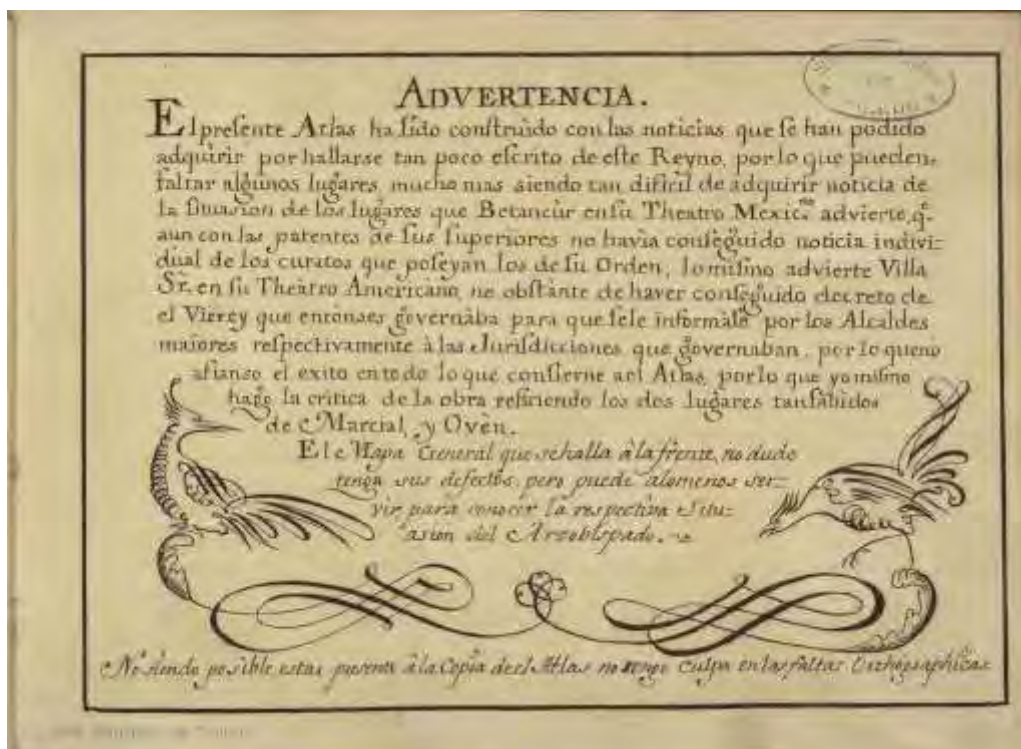 ADVERTENCIA.
El presente Atlas ha sido construido con las noticias que se han podido
adquirir por hallarse tan poco escrito de este Reyno, por lo que pueden,
faltar algunos lugares, mucho mas siendo tan dificil de adquirir noticia de
la situasion de los lugares que Betancur en su Theatro Mexic.no advierte, q.e
aun con las patentes de sus superiores no havia conseguido noticia indivi=
dual de los curatos que poseyan los de su Orden; lo mismo advierte Villa
Sr. en su Theatro Americano, no obstante de haver conseguido decreto de
el Virrey que entonses governaba para que sele informase por los Alcaldes
maiores respectivamente à las Jurisdicciones que governaban, por lo que no
afianso el exito en todo lo que consierne ael Atlas, por lo que yo mismo
hago la critica de la obra refiriendo los dos lugares tan sabidos
de Marcial, y Ovèn.
El Mapa General que se halla â la frente, no dudo
tenga sus defectos, pero puede alomenos ser=
vir para conocer la respectiva situ=
asion del Arzobispado.
No siendo posible estar presente â la Copia de el Atlas no tengo culpa en las faltas Orthographicas